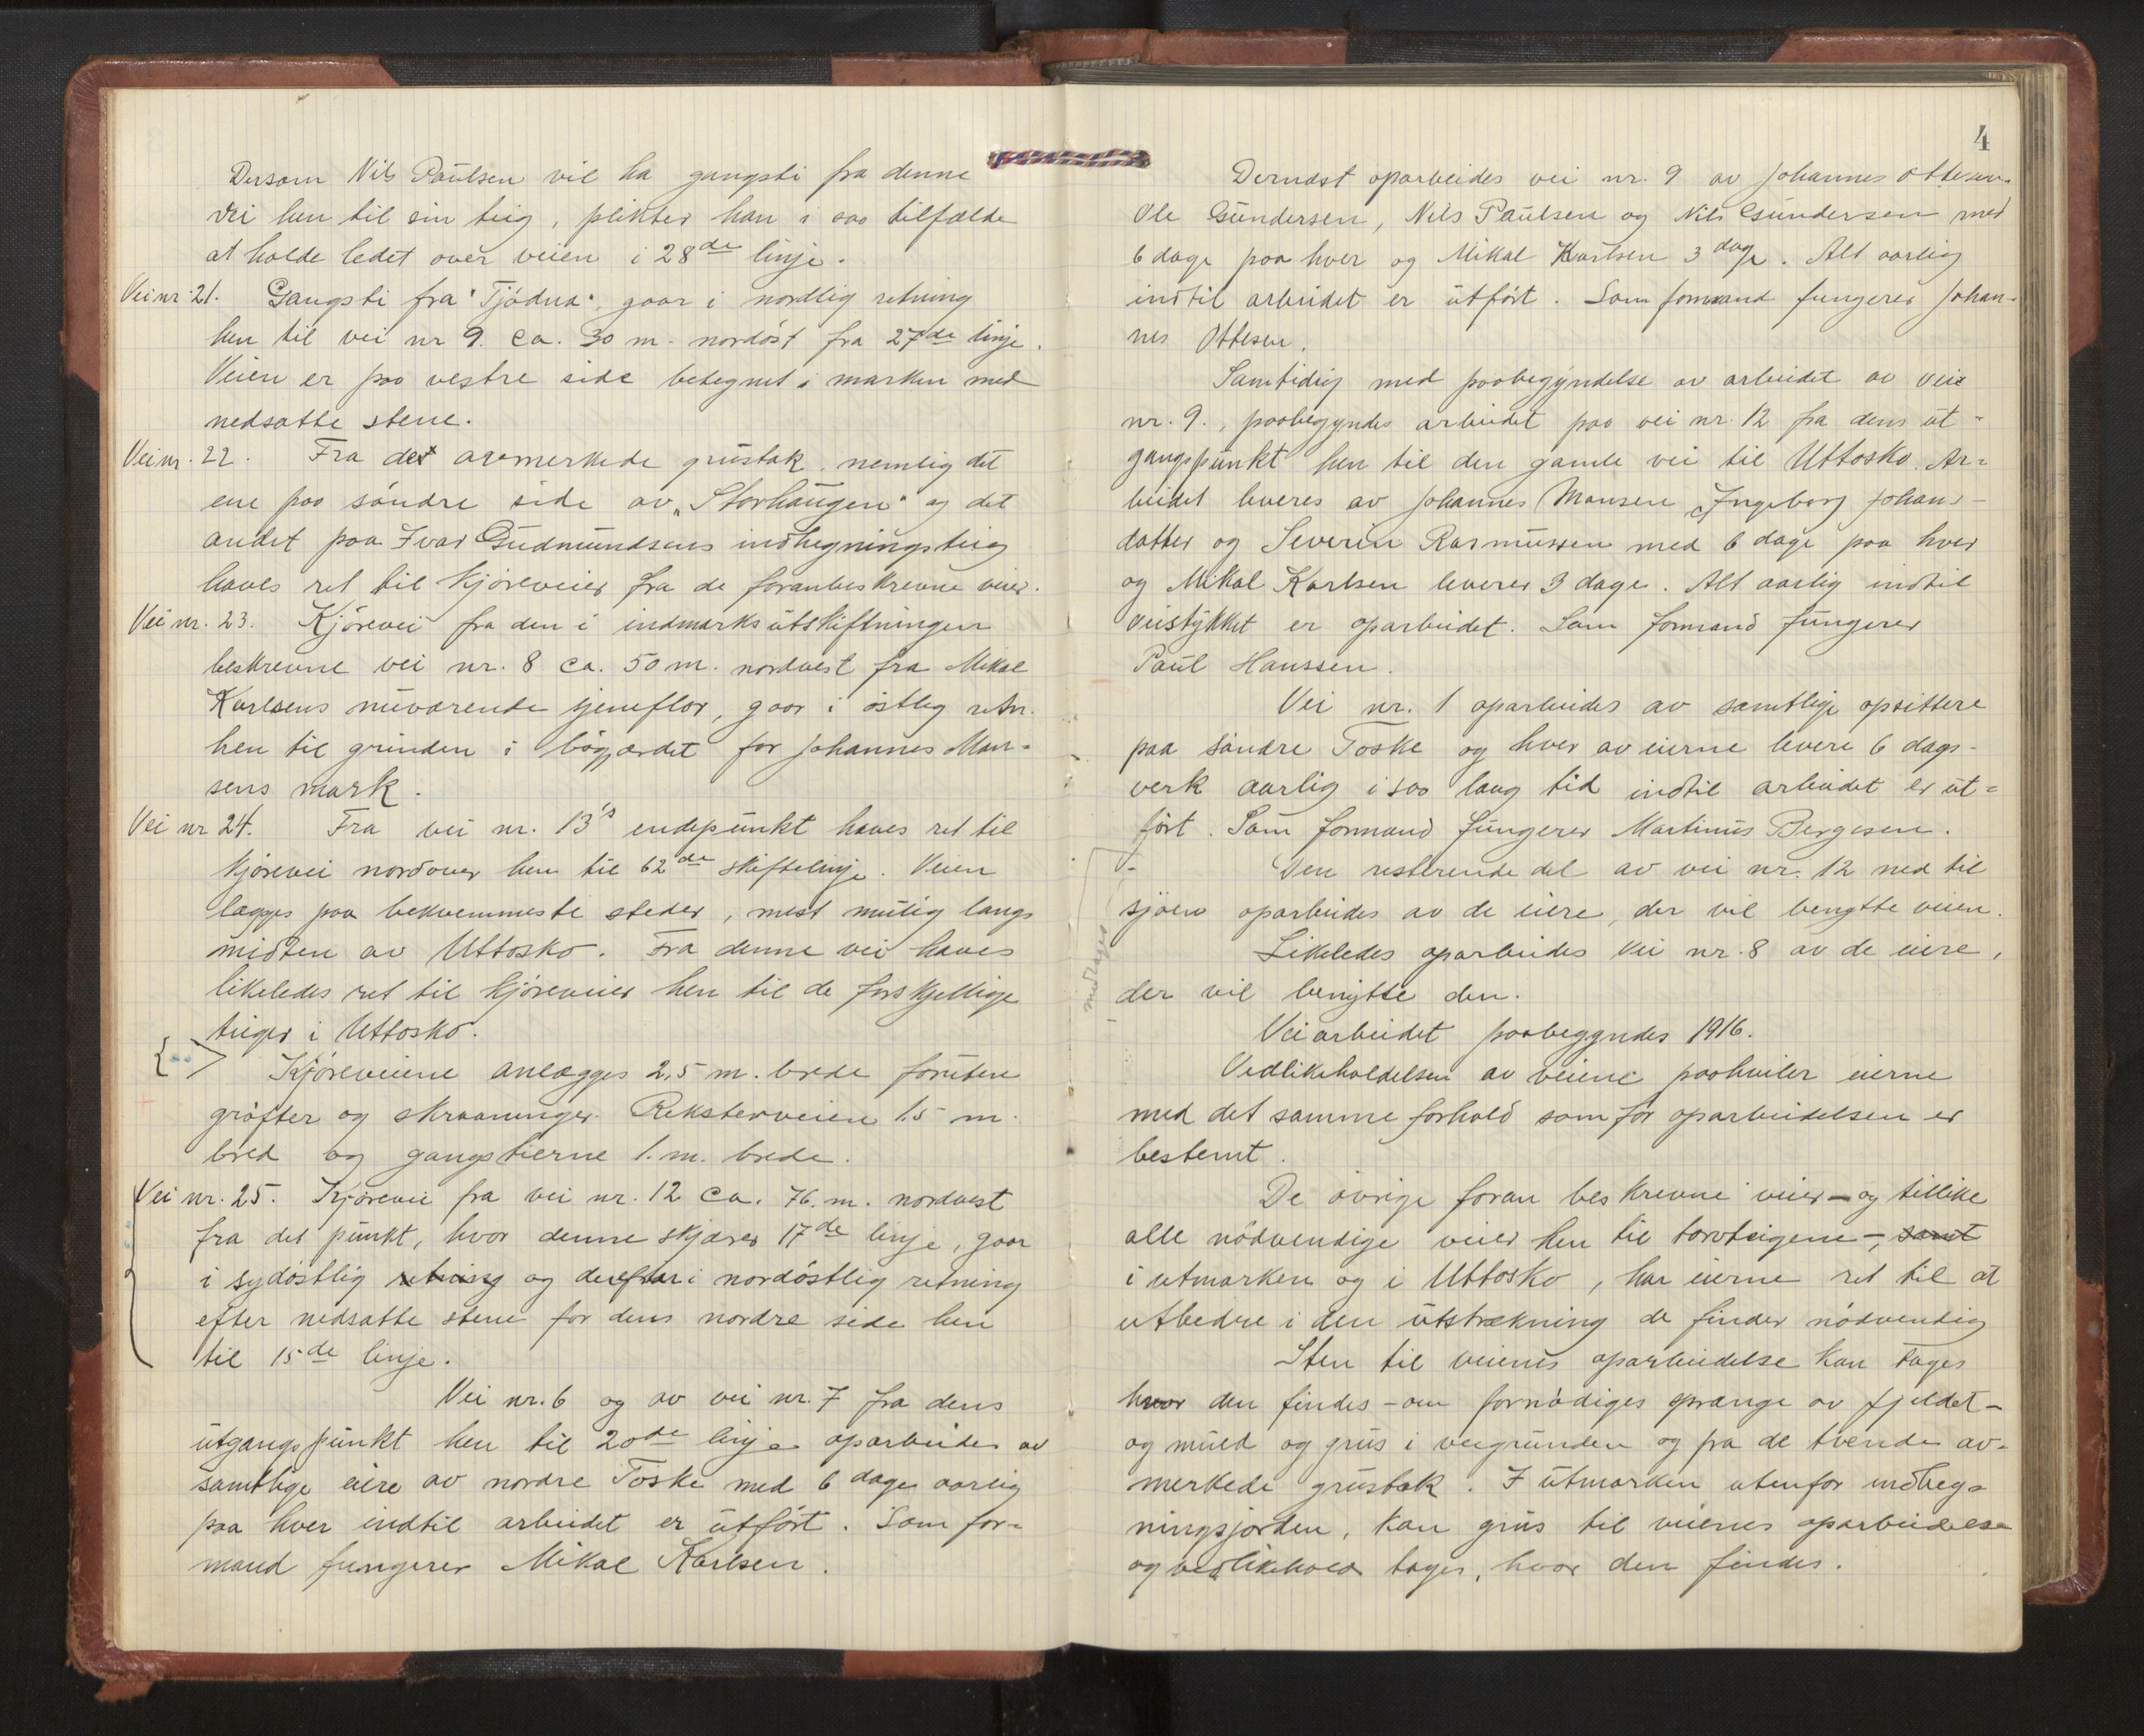 Dersom Nils Paulsen vil ha gangsti fra denne
vei hen til sin teig, plikter han i saa tilfælde
at holde ledet over veien i 28de linje.
Vei nr. 21. Gangsti fra "Tjödna", gaar i nordlig retning
hen til vei nr 9. ca. 30 m. nordöst fra 27de linje.
Veien er paa vestre side betegnet i marken med
nedsatte stene.
Vei nr. 22. Fra det avmerkede grustak, nemlig det
ene paa söndre side av "Storhaugen" og det
andet paa Ivar Gudmundsens indhegningsteig
haves ret til kjöreveier fra de foranbeskrevne veier.
Vei nr. 23. Kjörevei fra den i indmarksutskiftningen
beskrevne vei nr. 8 ca. 50 m. nordvest fra Mikal
Karlsens nuværende gjeneflor, gaar i östlig retn.
hen til grinden i bögjærdet for Johannes Mon-
sens mark.
Vei nr 24. Fra vei nr. 13's endepunkt haves ret til
kjörevei nordover hen til 62de skiftelinje. Veien
lægges paa bekvemmeste steder, mest mulig langs
midten av Uttosko. Fra denne vei haves
likeledes ret til kjöreveier hen til de forskjellige
teiger i Uttosko.
Kjöreveiene anlægges 2,5 m. brede foruten
gröfter og skraaninger. Reksterveien 1.5 m.
bred og gangstierne 1. m. brede.
Vei nr. 25. Kjörevei fra vei nr. 12 ca. 76. m. nordvest
fra det punkt, hvor denne skjærer 17de linje, gaar
i sydöstlig retning og derefter i nordöstlig retning
efter nedsatte stene for dens nordre side hen
til 15de linje.
Vei nr. 6 og av vei nr. 7 fra dens
utgangspunkt hen til 20de linje oparbeides av
samtlige eiere av nordre Toske med 6 dage aarlig
paa hver indtil arbeidet er utfört. Som for-
mand fungerer Mikal Karlsen.
4
Dernæst oparbeides vei nr. 9 av Johannes Ottesen.
Ole Gundersen, Nils Paulsen og Nils Gundersen med
6 dage paa hver og Mikal Karlsen 3 dage. Alt aarlig
indtil arbeidet er utfört. Som formand fungerer Johan-
nes Ottesen.
Samtidig med paabegyndelse av arbeidet av vei
nr. 9., paabegyndes arbeidet paa vei nr. 12 fra dens ut-
gangspunkt hen til den gamle vei til Uttosko. Ar-
beidet leveres av Johannes Monsen, Ingeborg Johans-
datter og Severin Rasmussen med 6 dage paa hver
og Mikal Karlsen leverer 3 dage. Alt aarlig indtil
veistykket er oparbeidet. Som formand fungerer
Paul Hanssen.
Vei nr. 1 oparbeides av samtlige opsittere
paa söndre Toske og hver av eierne levere 6 dags-
verk aarlig i saa lang tid indtil arbeidet er ut-
fört. Som formand fungerer Martinus Bergesen.
Den resterende del av vei nr. 12 ned til
sjöen oparbeides av de eiere, der vil benytte veien.
Likeledes oparbeides vei nr. 8 av de eiere,
der vil benytte den.
Veiarbeidet paabegyndes 1916.
Vedlikeholdelsen av veiene paahviler eierne
med det samme forhold som for oparbeidelsen er
bestemt.
De övrige foran beskrevne veier - og tillike
alle nödvendige veier hen til torvteigene -, samt
i utmarken og i Uttosko, har eierne ret til at
utbedre i den utstrækning de finder nödvendig
Sten til veienes oparbeidelse kan tages
hvor den findes - om fornödiges sprænge av fjeldet -
og muld og grus i veigrunden og fra de tvende av-
merkede grustak. I utmarken utenfor indheg-
ningsjorden, kan grus til veienes oparbeidelse
og vedlikehold tages, hvor den findes.